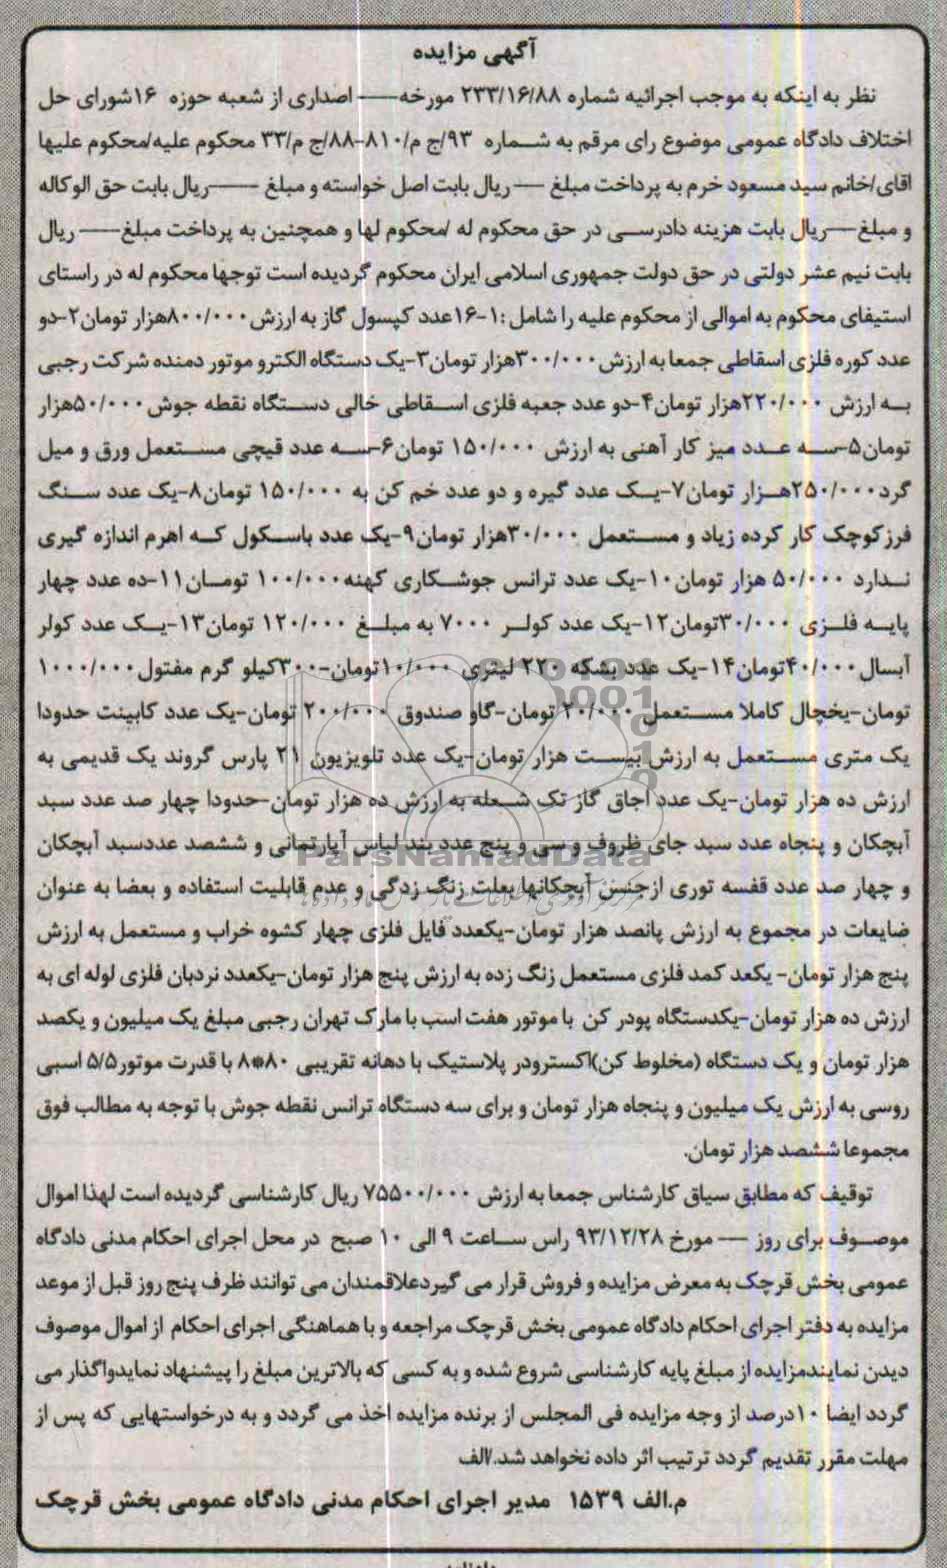 آگهی مزایده
نظر به اینکه به موجب اجرائیه شماره ۲۳۳/۱۶/۸۸ مورخه---- اصداری از شعبه حوزه ۱۶شورای حل
اختلاف دادگاه عمومی موضوع رای مرقم به شماره ۹۳/ج م/۸۱۰-۸۸/ج م/۳۳ محکوم علیه/محکوم علیها
اقای/خانم سید مسعود خرم به پرداخت مبلغ --- ریال بابت اصل خواسته و مبلغ -----ریال بابت حق الوکاله
و مبلغ---ریال بابت هزینه دادرسی در حق محکوم له /محکوم لها و همچنین به پرداخت مبلغ---- ریال
بابت نیم عشر دولتی در حق دولت جمهوری اسلامی ایران محکوم گردیده است توجها محکوم له در راستای
استیفای محکوم به اموالی از محکوم علیه را شامل :۱-۱۶عدد کپسول گاز به ارزش۸۰۰/۰۰۰هزار تومان۲-دو
عدد کوره فلزی اسقاطی جمعا به ارزش ۳۰۰/۰۰۰هزار تومان۳-یک دستگاه الکترو موتور دمنده شرکت رجبی
به ارزش ۲۲۰/۰۰۰هزار تومان۴-دو عدد جعبه فلزی اسقاطی خالی دستگاه نقطه جوش۵۰/۰۰۰هزار
تومان۵-سه عدد میز کار آهنی به ارزش ۱۵۰/۰۰۰ تومان۶-سه عدد قیچی مستعمل ورق و میل
گرد۲۵۰/۰۰۰هزار تومان۷-یک عدد گیره و دو عدد خم کن به ۱۵۰/۰۰۰ تومان۸-یک عدد سنگ
فرزکوچک کار کرده زیاد و مستعمل ۳۰/۰۰۰هزار تومان۹-یک عدد باسکول که اهرم اندازه گیری
ندارد ۵۰/۰۰۰ هزار تومان۱۰-یک عدد ترانس جوشکاری کهنه۱۰۰/۰۰۰ تومان۱۱-ده عدد چهار
پایه فلزی ۳۰/۰۰۰تومان۱۲-یک عدد کولر ۷۰۰۰ به مبلغ ۱۲۰/۰۰۰ تومان۱۳-یک عدد کولر
آبسال۴۰/۰۰۰تومان۱۴-یک عدد بشکه ۲۲۰ لیتری ۱۰/۰۰۰تومان-۳۰۰کیلو گرم مفتول۱۰۰۰/۰۰۰
تومان-یخچال کاملا مستعمل ۲۰/۰۰۰ تومان-گاو صندوق ۲۰۰/۰۰۰ تومان-یک عدد کابینت حدودا
یک متری مستعمل به ارزش بیست هزار تومان-یک عدد تلویزیون ۲۱ پارس گروند یک قدیمی به
ارزش ده هزار تومان-یک عدد اجاق گاز تک شعله به ارزش ده هزار تومان-حدودا چهار صد عدد سبد
آبچکان و پنجاه عدد سبد جای ظروف و سی و پنج عدد بند لباس آپارتمانی و ششصد عددسبد آبچکان
ParsNamadData
و چهار صد عدد قفسه توری ازجنس آبچکانها بعلت زنگ زدگی و عدم قابلیت استفاده و بعضا به عنوان
ضایعات در مجموع به ارزش پانصد هزار تومان-یکعدد فایل فلزی چهار کشوه خراب و مستعمل به ارزش
پنج هزار تومان- یکعد کمد فلزی مستعمل زنگ زده به ارزش پنج هزار تومان-یکعدد نردبان فلزی لوله ای به
ارزش ده هزار تومان-یکدستگاه پودر کن با موتور هفت اسب با مارک تهران رجبی مبلغ یک میلیون و یکصد
هزار تومان و یک دستگاه (مخلوط کن)اکسترودر پلاستیک با دهانه تقریبی ۸۰*۸ با قدرت موتور۵/۵ اسبی
روسی به ارزش یک میلیون و پنجاه هزار تومان و برای سه دستگاه ترانس نقطه جوش با توجه به مطالب فوق
مجموعا ششصد هزار تومان.
توقیف که مطابق سیاق کارشناس جمعا به ارزش ۷۵۵۰۰/۰۰۰ ریال کارشناسی گردیده است لهذا اموال
موصوف برای روز --- مورخ ۹۳/۱۲/۲۸ راس ساعت ۹ الی ۱۰ صبح در محل اجرای احکام مدنی دادگاه
عمومی بخش قرچک به معرض مزایده و فروش قرار می گیردعلاقمندان می توانند ظرف پنج روز قبل از موعد
مزایده به دفتر اجرای احکام دادگاه عمومی بخش قرچک مراجعه و با هماهنگی اجرای احکام از اموال موصوف
دیدن نمایندمزایده از مبلغ پایه کارشناسی شروع شده و به کسی که بالاترین مبلغ را پیشنهاد نمایدواگذار می
گردد ایضا ۱۰درصد از وجه مزایده فی المجلس از برنده مزایده اخذ می گردد و به درخواستهایی که پس از
مهلت مقرر تقدیم گردد ترتیب اثر داده نخواهد شد./الف
م.الف ۱۵۳۹ مدیر اجرای احکام مدنی دادگاه عمومی بخش قرچک